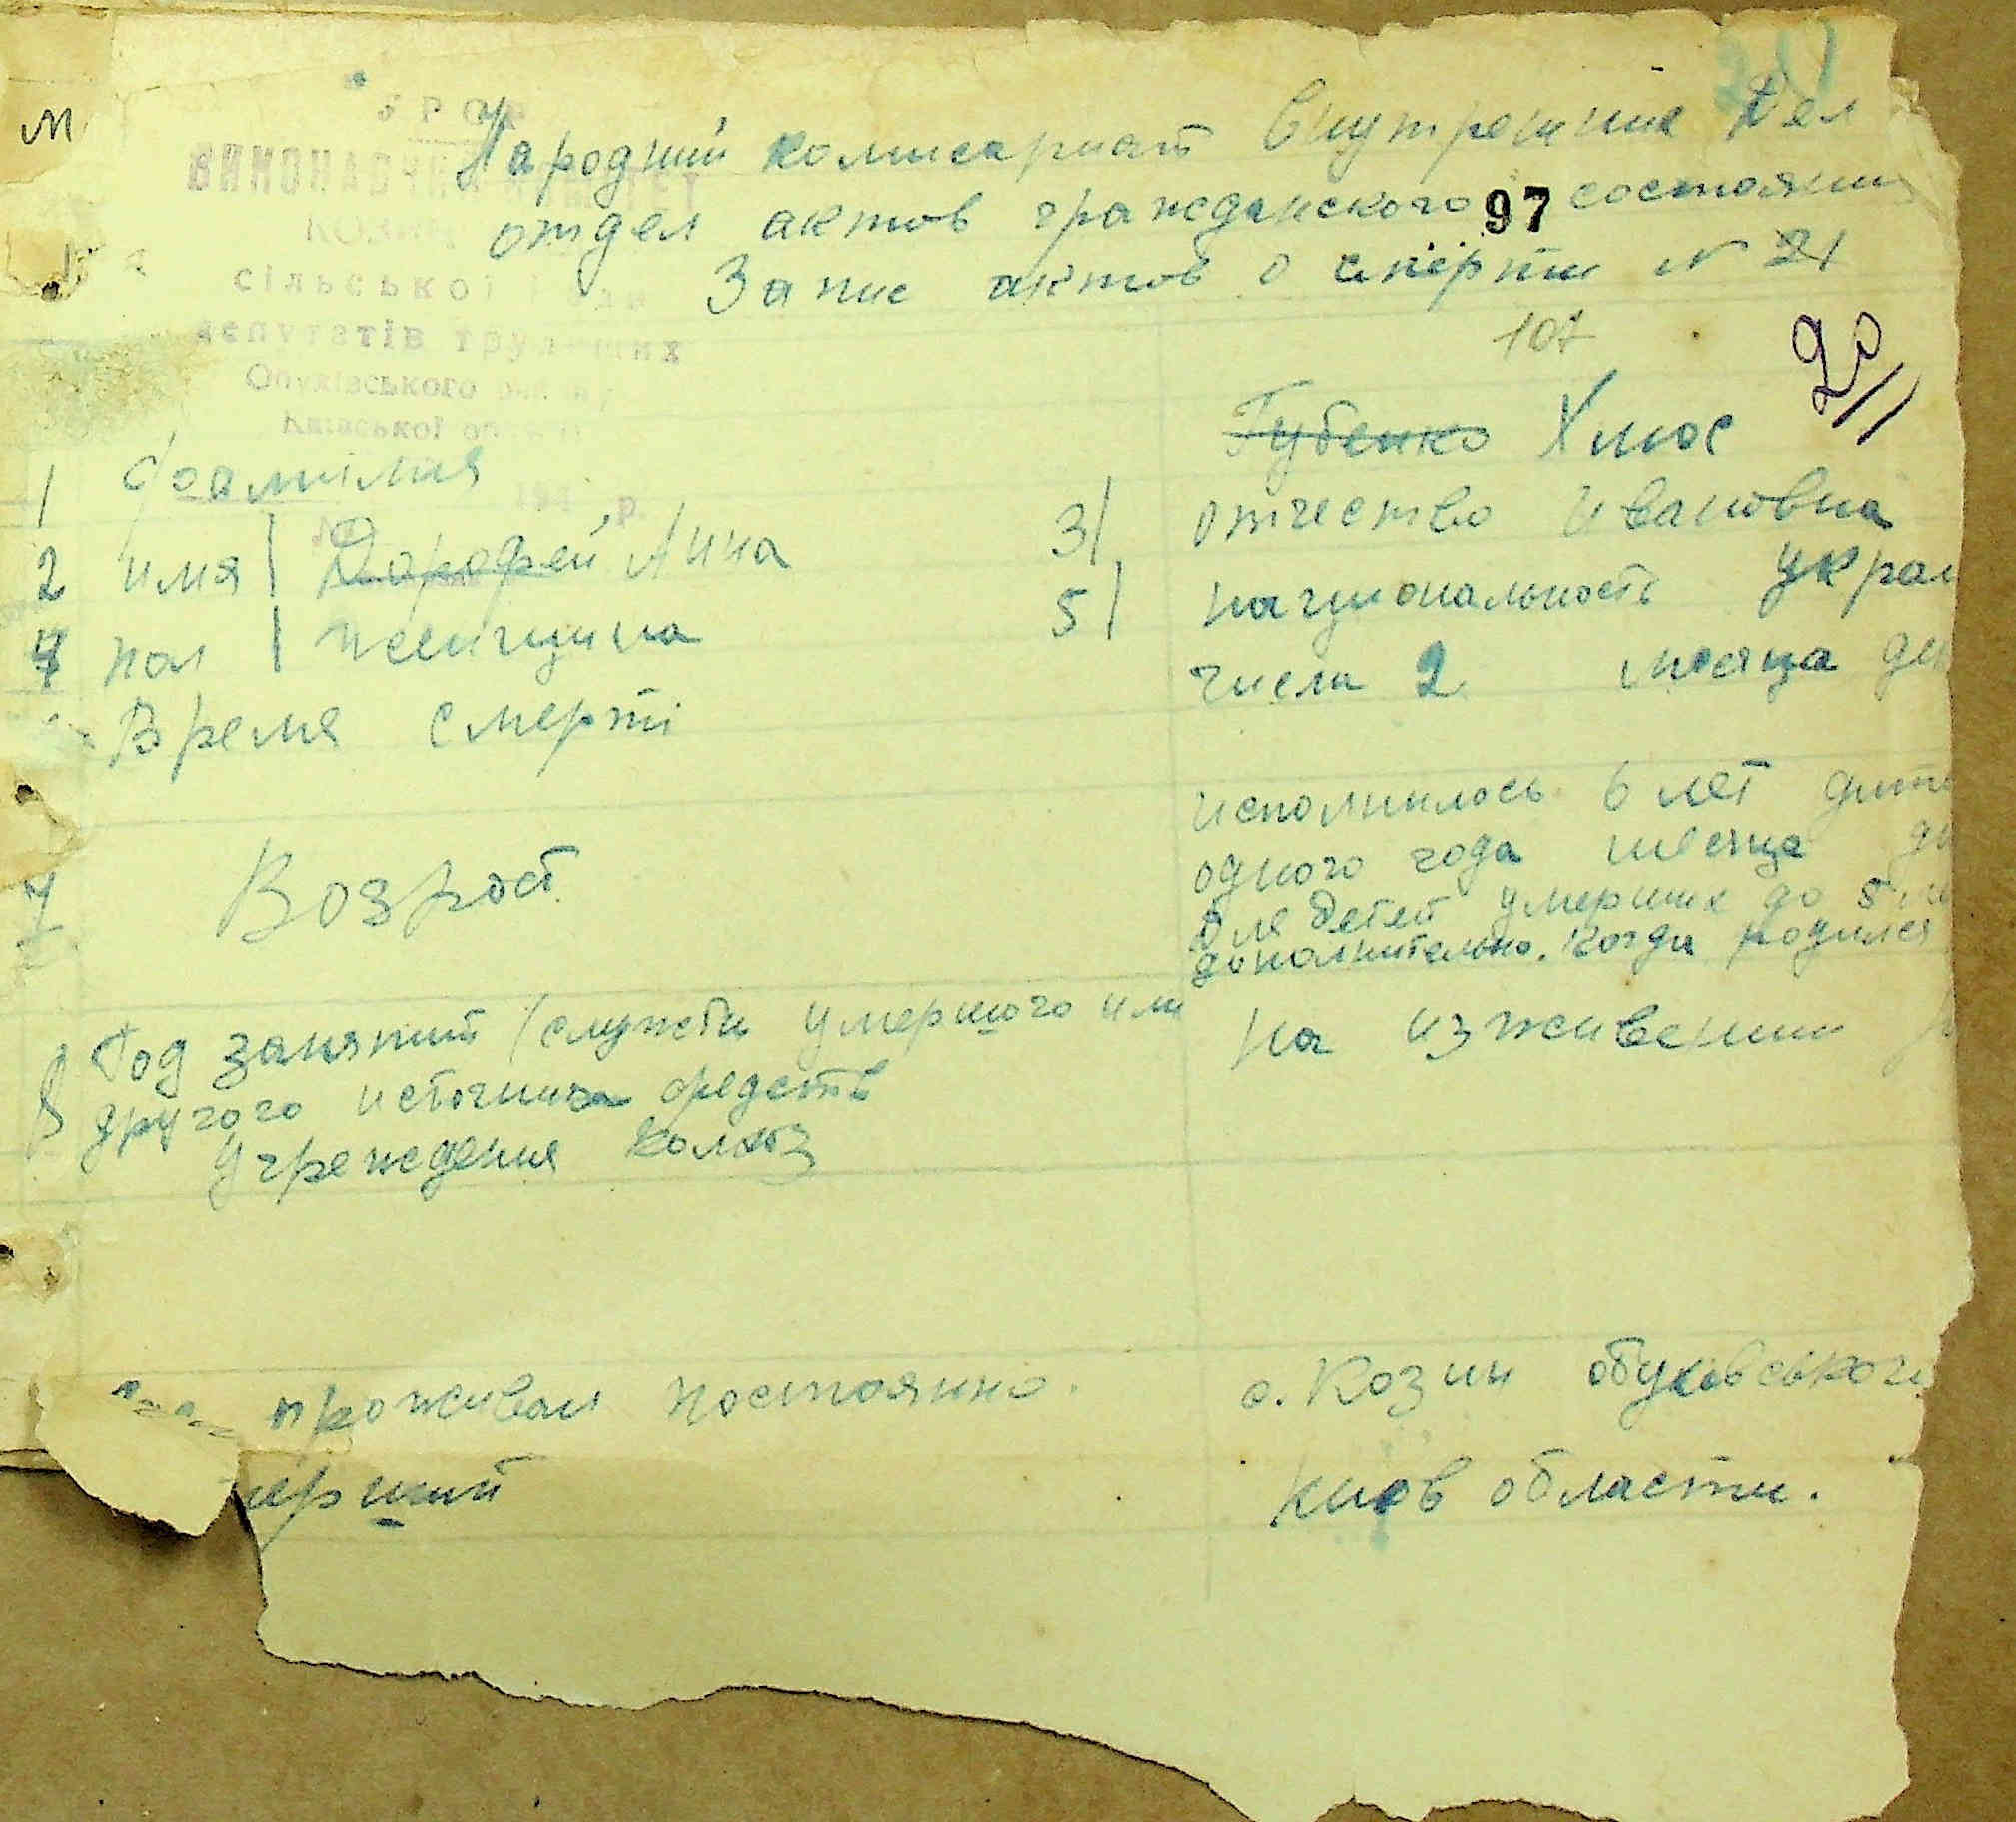 М
УРСР
ВИКОНАВЧИЙ КОМІТЕТ
КОЗИН
сільської ради
депутатів трудящих
Обухівського району
Київської області
194 р.
Народний комисариат Внутрениих Дел
отдел актов гражданского 97 состояния
Запис актов о смерти N 21
107
20
1 фоамилия Губенко Хлюс
2 имя Дорофей Анна 3/ отчество Ивановна
4 пол женщина 5/ национальность Украи
Время смерті числа 2 месяца де
7 Возрост Исполнилось 6 лет дит
одного года месяца дн
Для детей умерших до 5 ле
дополнительно. Когда родился
8 Род занятий (службы умершого или на изживении
другого источника средств
Учреждения колхоз
проживал постоянно. с. Козин обуховського
мерший Киев области.